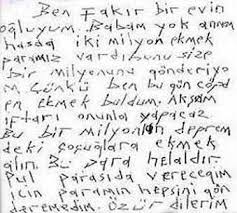 Ben Fakır bir evin
oğluyum. Babam yok annem
hasda iki milyon ekmek
paramız vardı bunu size
bir milyonunu gönderiyo
m Çünkü ben bu gün çöpd
en ekmek buldum. Akşam
iftarı onunla yapacaz
Bu bir milyonlan deprem
deki çoçuğlara ekmek
alın. Bu para helaldır.
Pul parasıda vereceğim
için paramın hepsini gön
deremedim. Özür dilerim